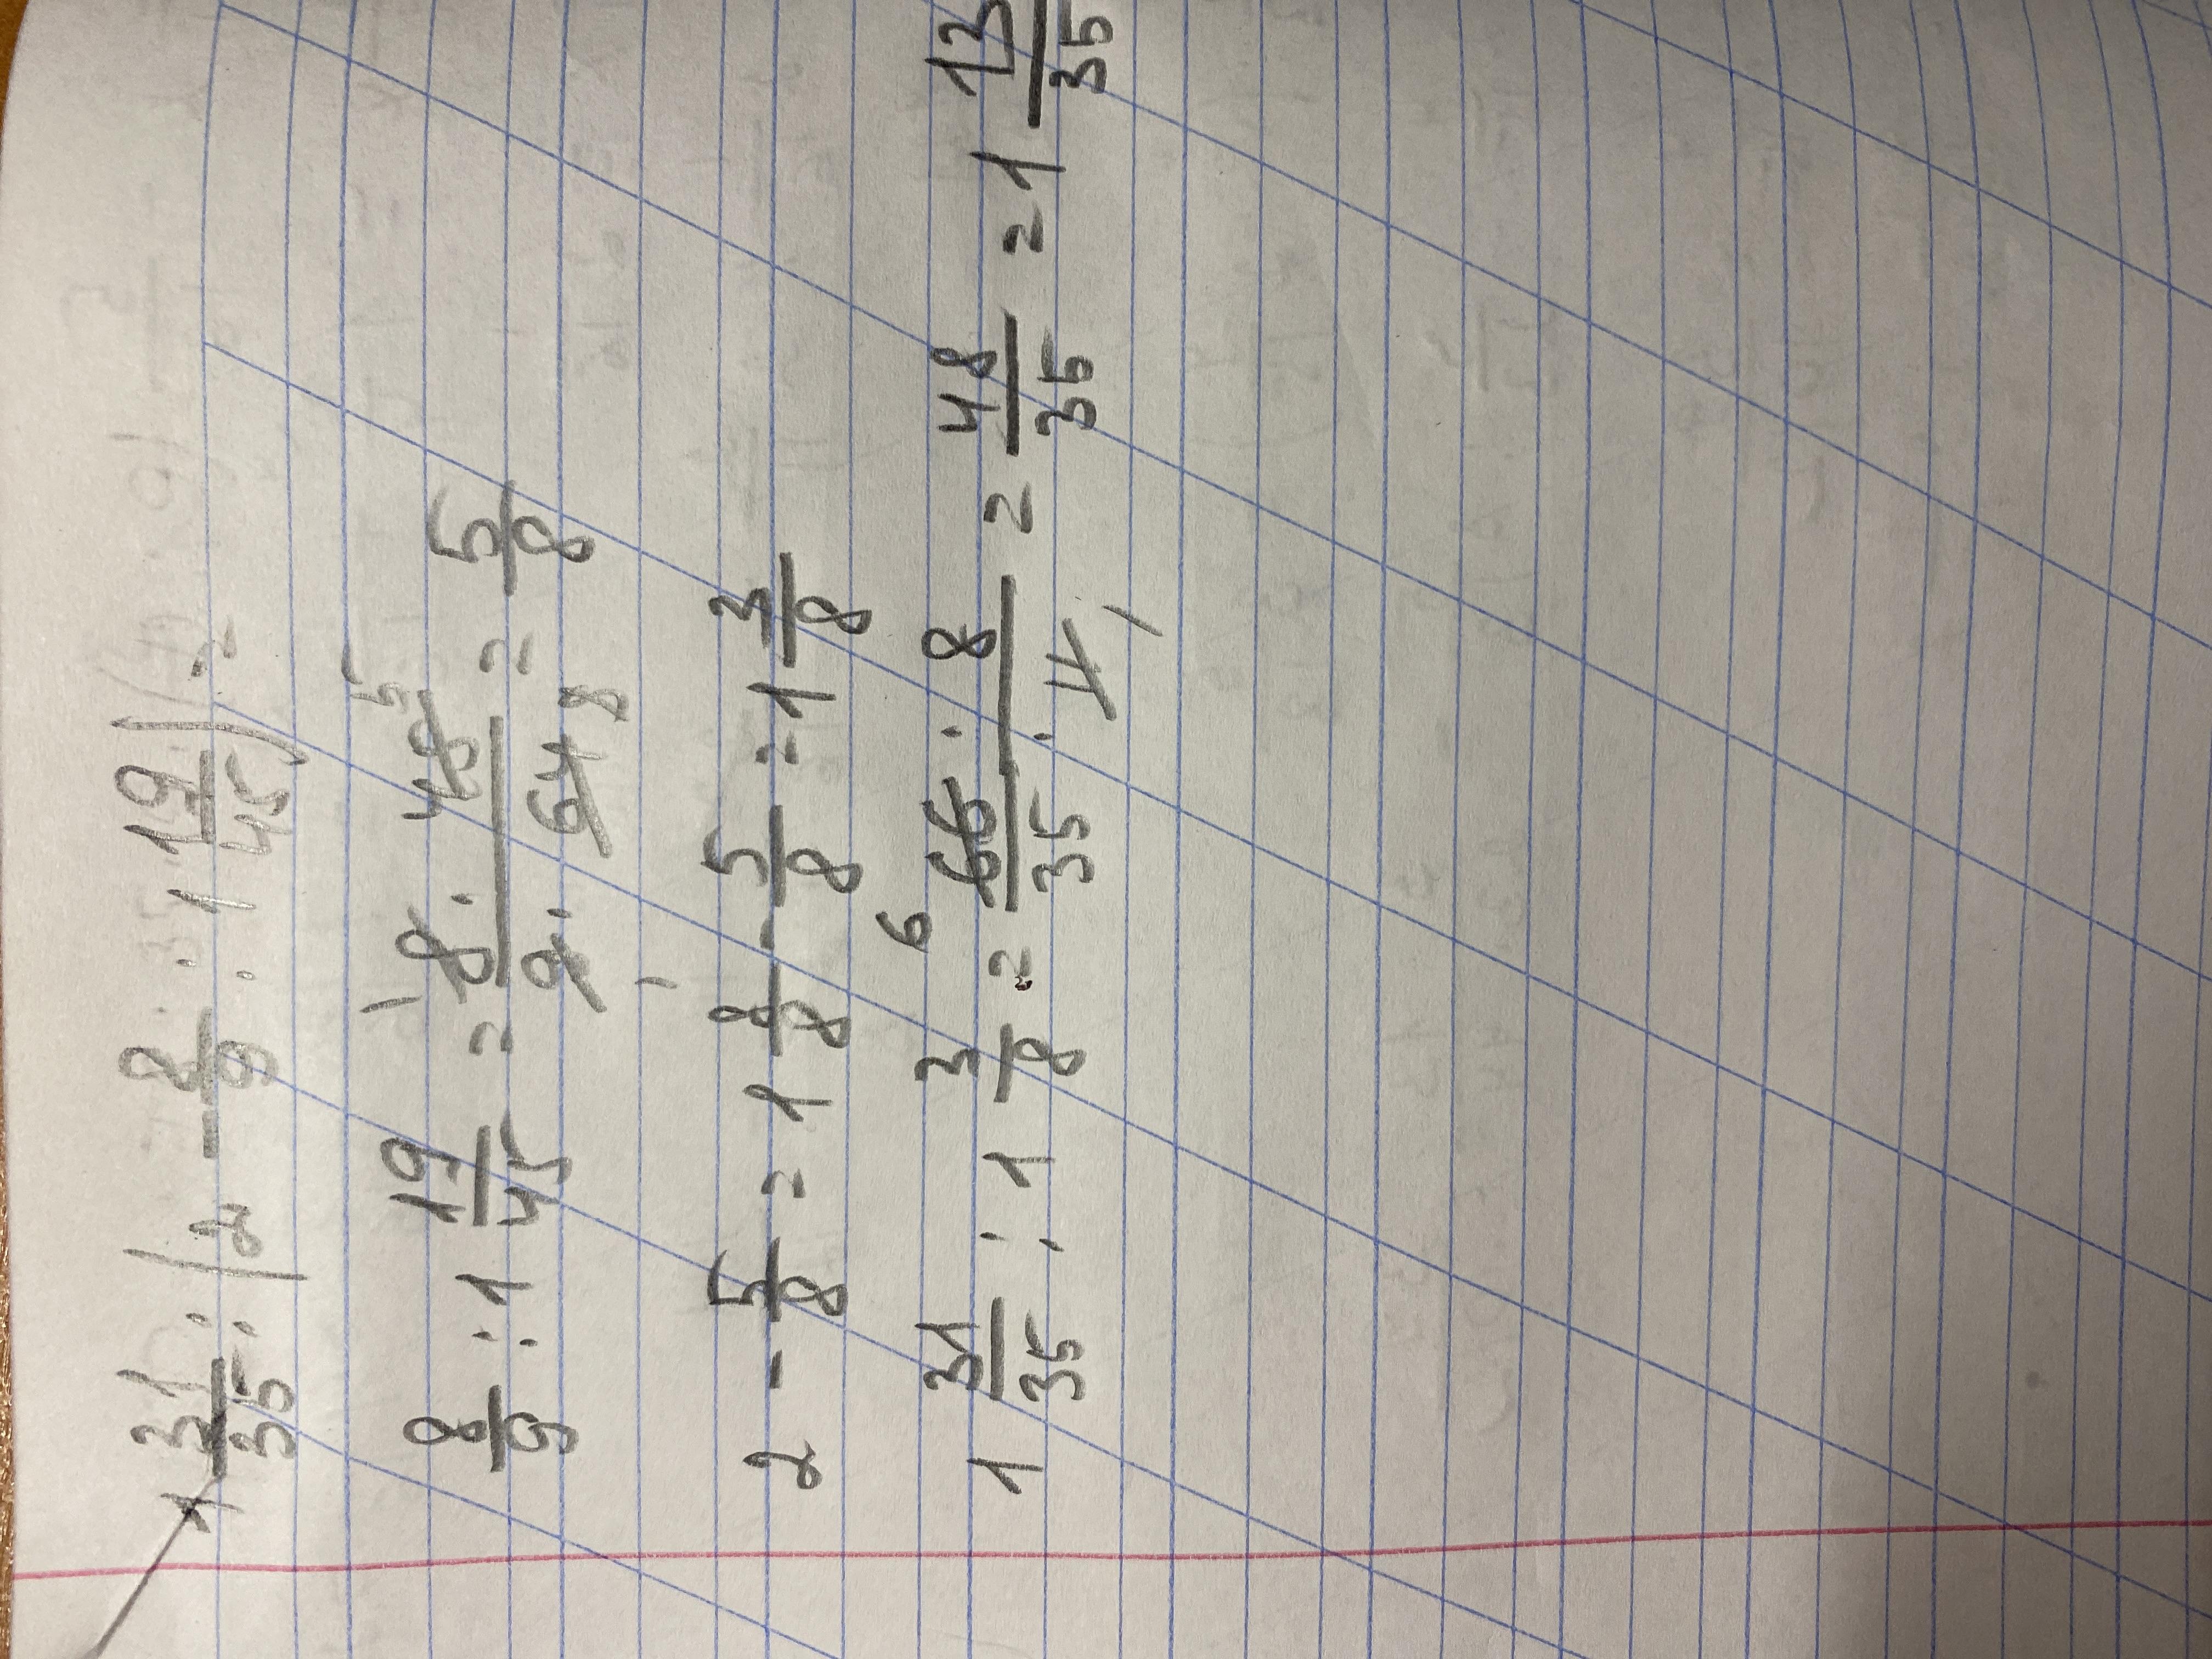 1 31/35 : (2 - 8/9 : 1 19/45) =
8/9 : 1 19/45 = 8 · 45/9 · 64 = 5/8
2 - 5/8 = 1 8/8 - 5/8 = 1 3/8
1 31/35 : 1 3/8 = 66 · 8/35 · 11 = 48/35 = 1 13/35